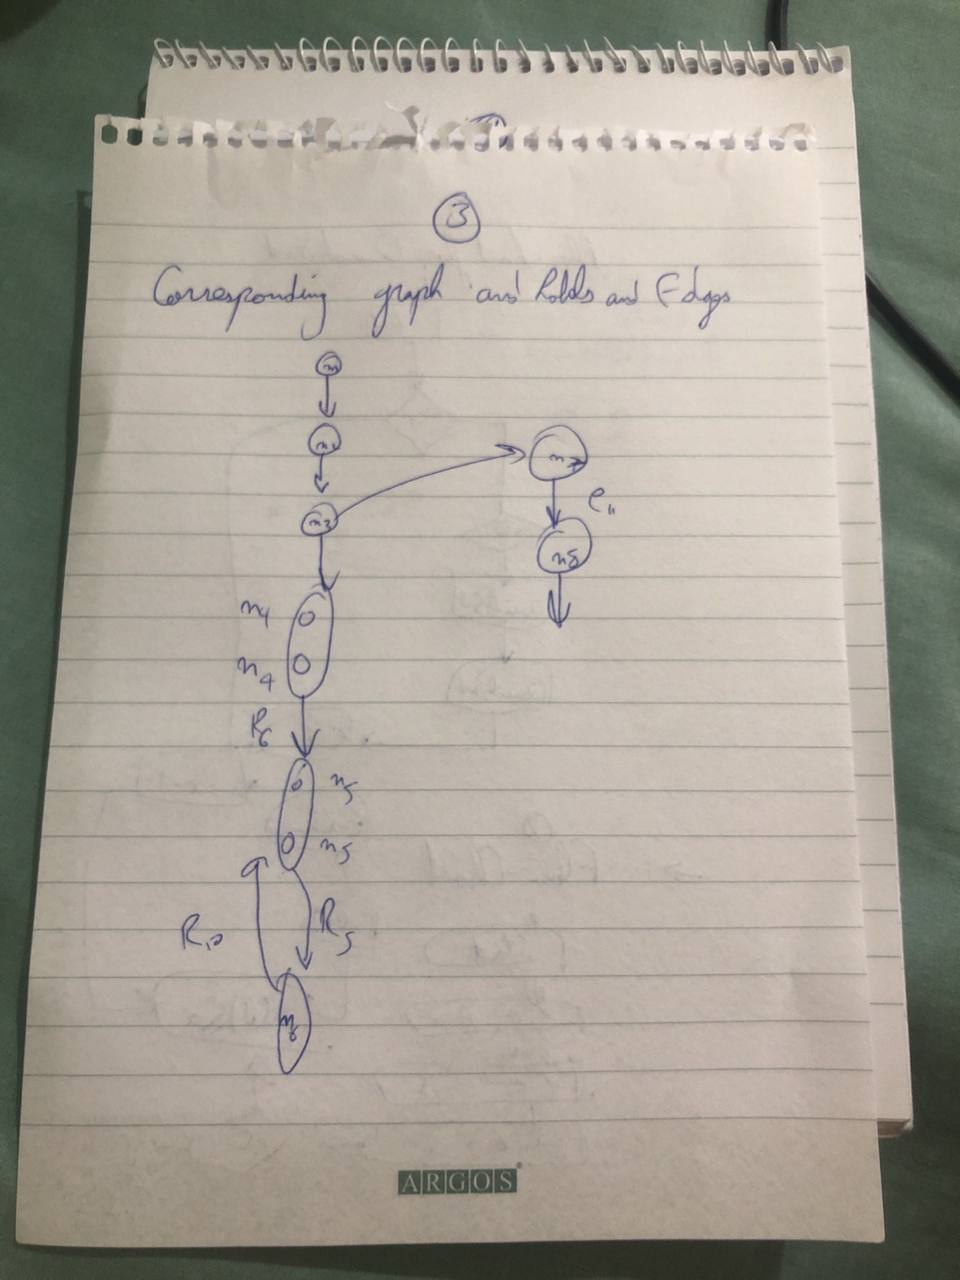 3
Corresponding graph and holds and Edges
n
n
n3
n7
e11
n8
n4
n4
R6
n5
n5
R10
R5
n6
ARGOS